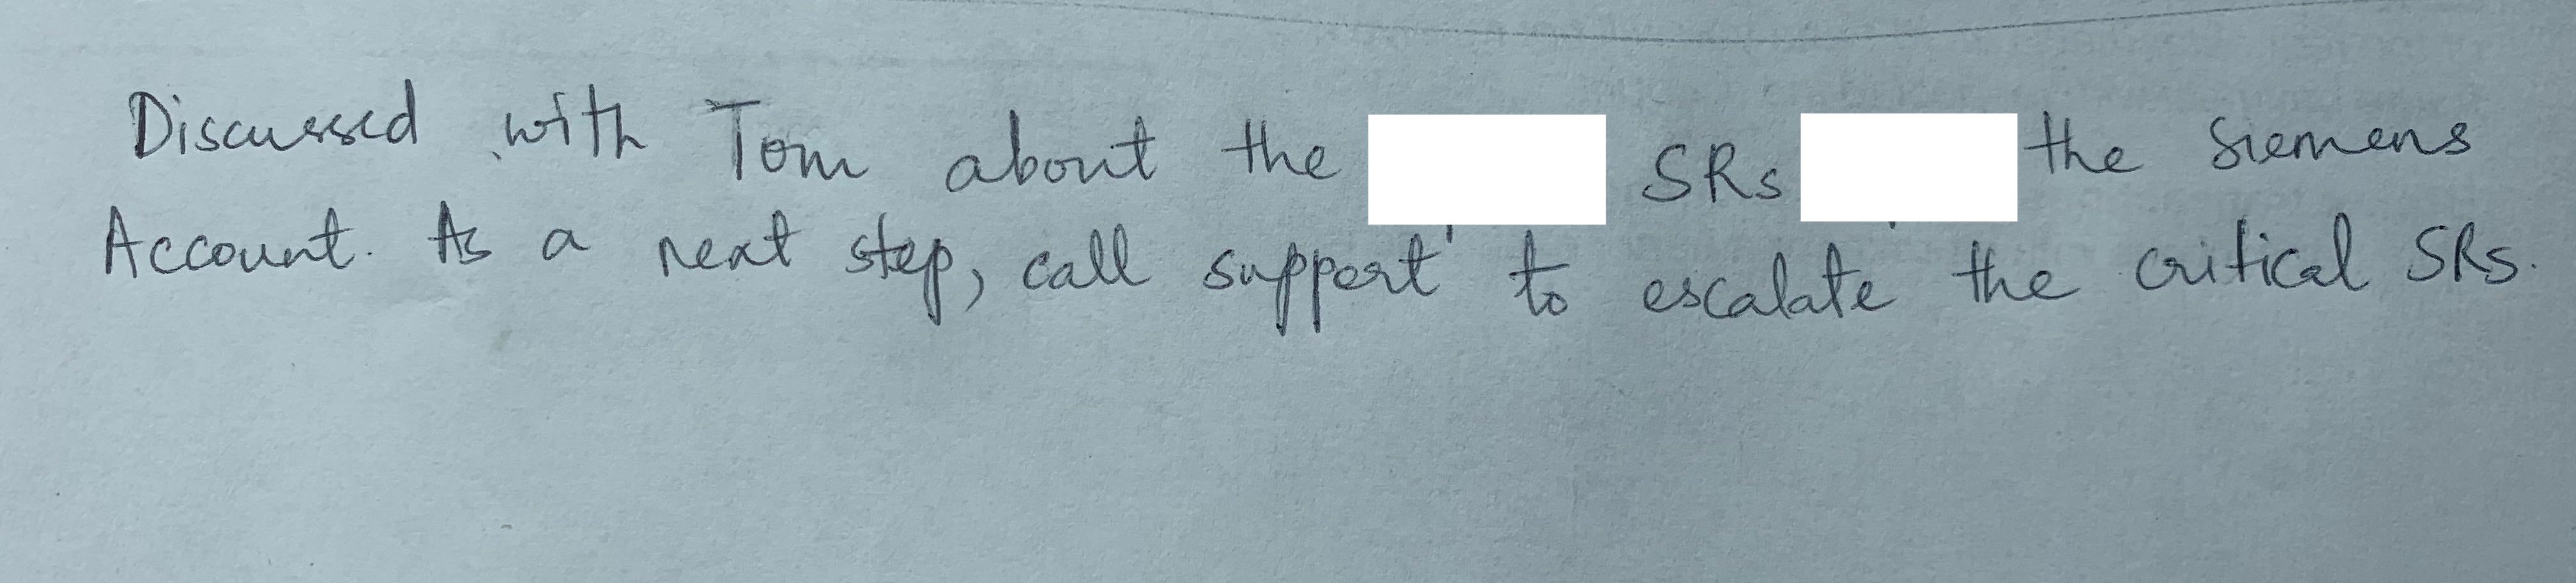 Discussed with Tom about the SRs the Siemens
Account. As a next step, call support to escalate the critical SRs.